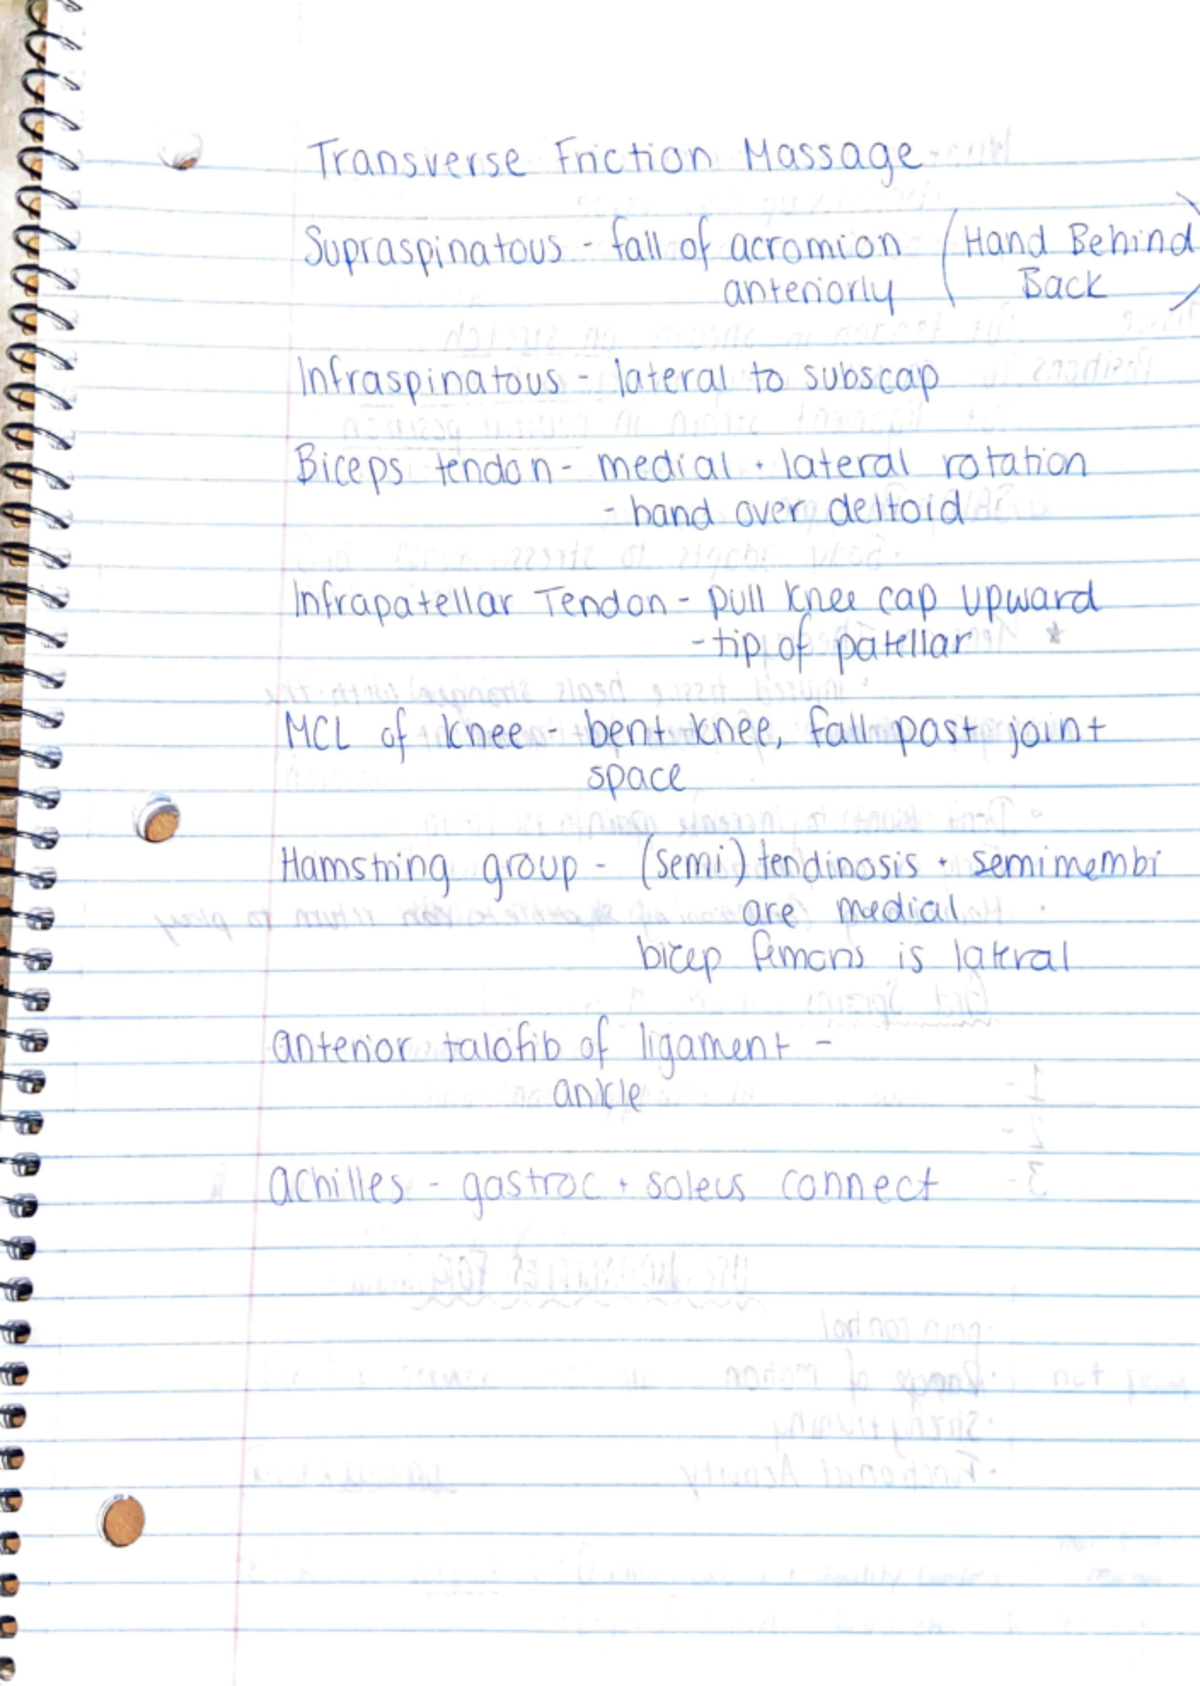 Transverse Friction Massage
Supraspinatous - fall of acromion (Hand Behind
anteriorly Back)
Infraspinatous - lateral to subscap
Biceps tendon - medial + lateral rotation
- hand over deltoid
Infrapatellar Tendon - pull knee cap upward
- tip of patellar *
MCL of knee - bent knee, fall past joint
space
Hamstring group - (semi) tendinosis + semimembi
are medial
bicep femoris is lateral
anterior talofib of ligament -
ankle
achilles - gastroc + soleus connect